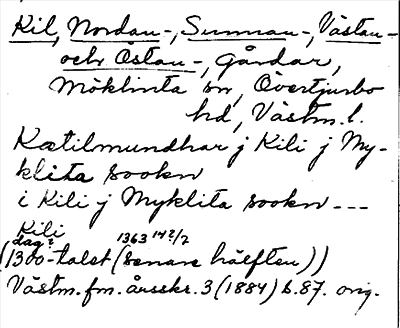 Kil, Nordan-, Sunnan-, Västan-
och Östan-, gårdar,
Möklinta sn, Övertjurbo
hd, Västm. l.
Kætilmundhar j Kili j My-
klita sookn
i Kili j Myklita sookn ---
Kili
dag? 1363 14 2/7
(1300-talet (senare hälften))
Västm. fm. årsskr. 3 (1884) s. 87. orig.